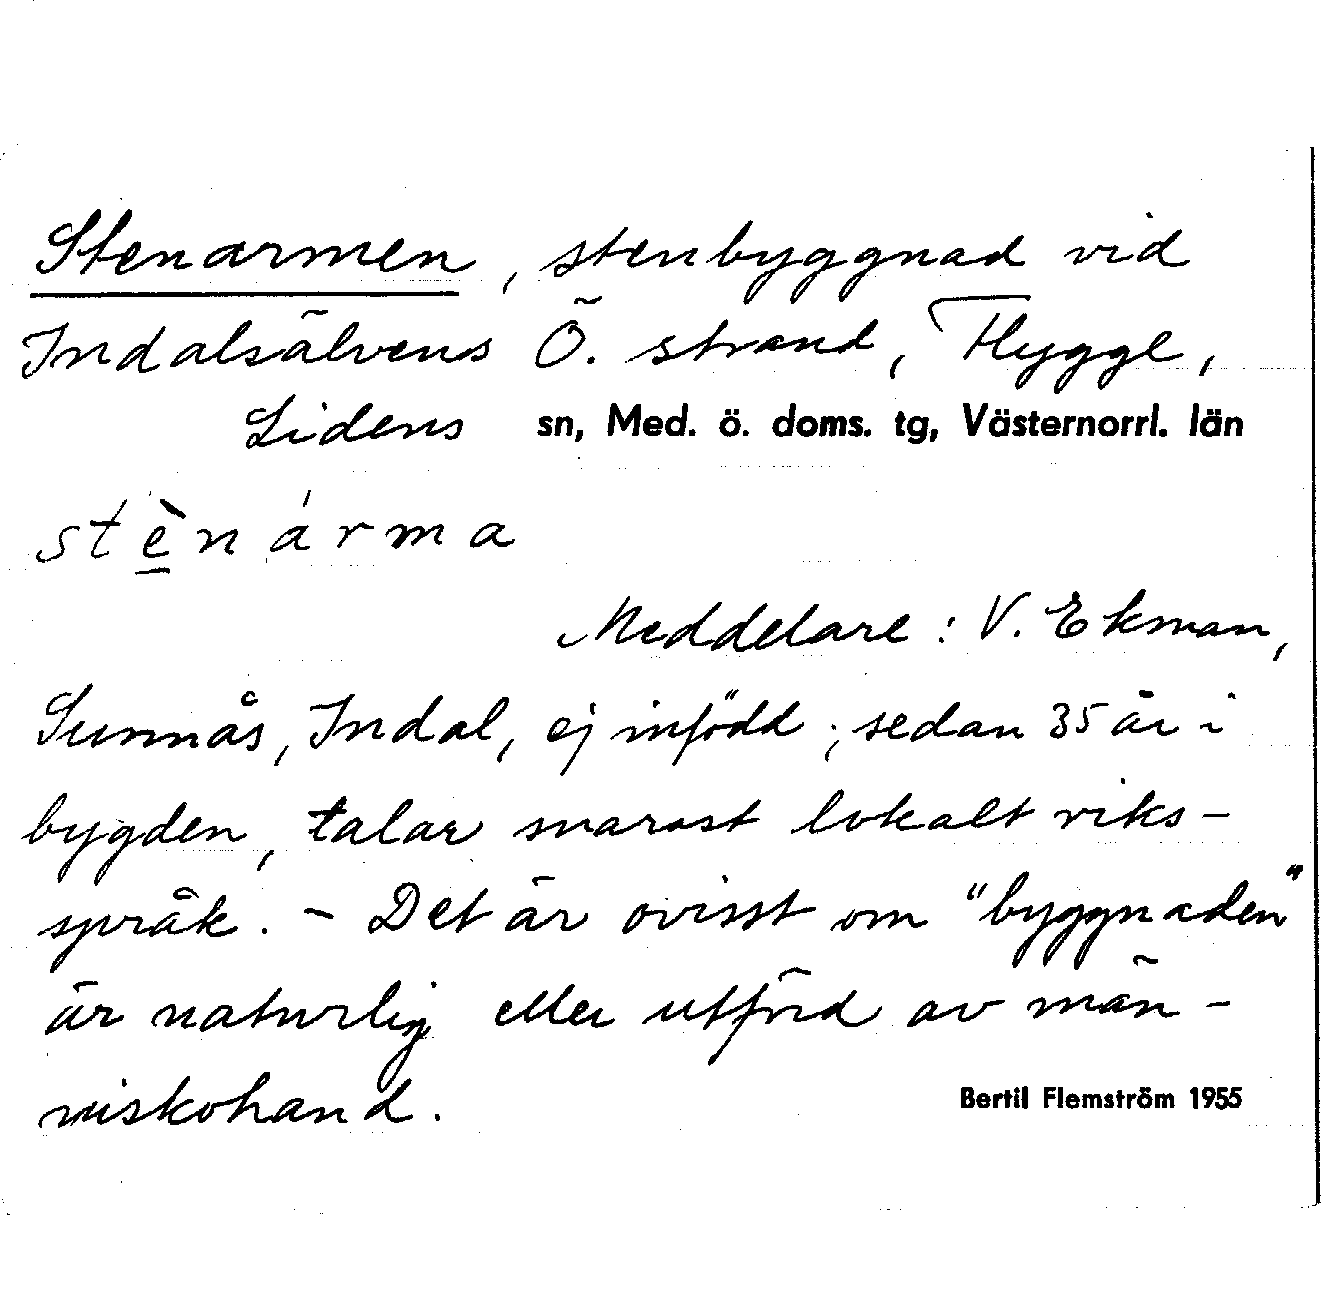 Stenarmen, stenbyggnad vid
Indalsälvens Ö. strand, Flygge,
Lidens sn, Med. ö. doms. tg, Västernorrl. län
stè̱nárma
Meddelare: V. Ekman,
Sunnås, Indal, ej infödd; sedan 35 år i
bygden, talar snarast lokalt riks-
språk. - Det är ovisst om "byggnaden"
är naturlig eller utförd av män-
niskohand.
Bertil Flemström 1955